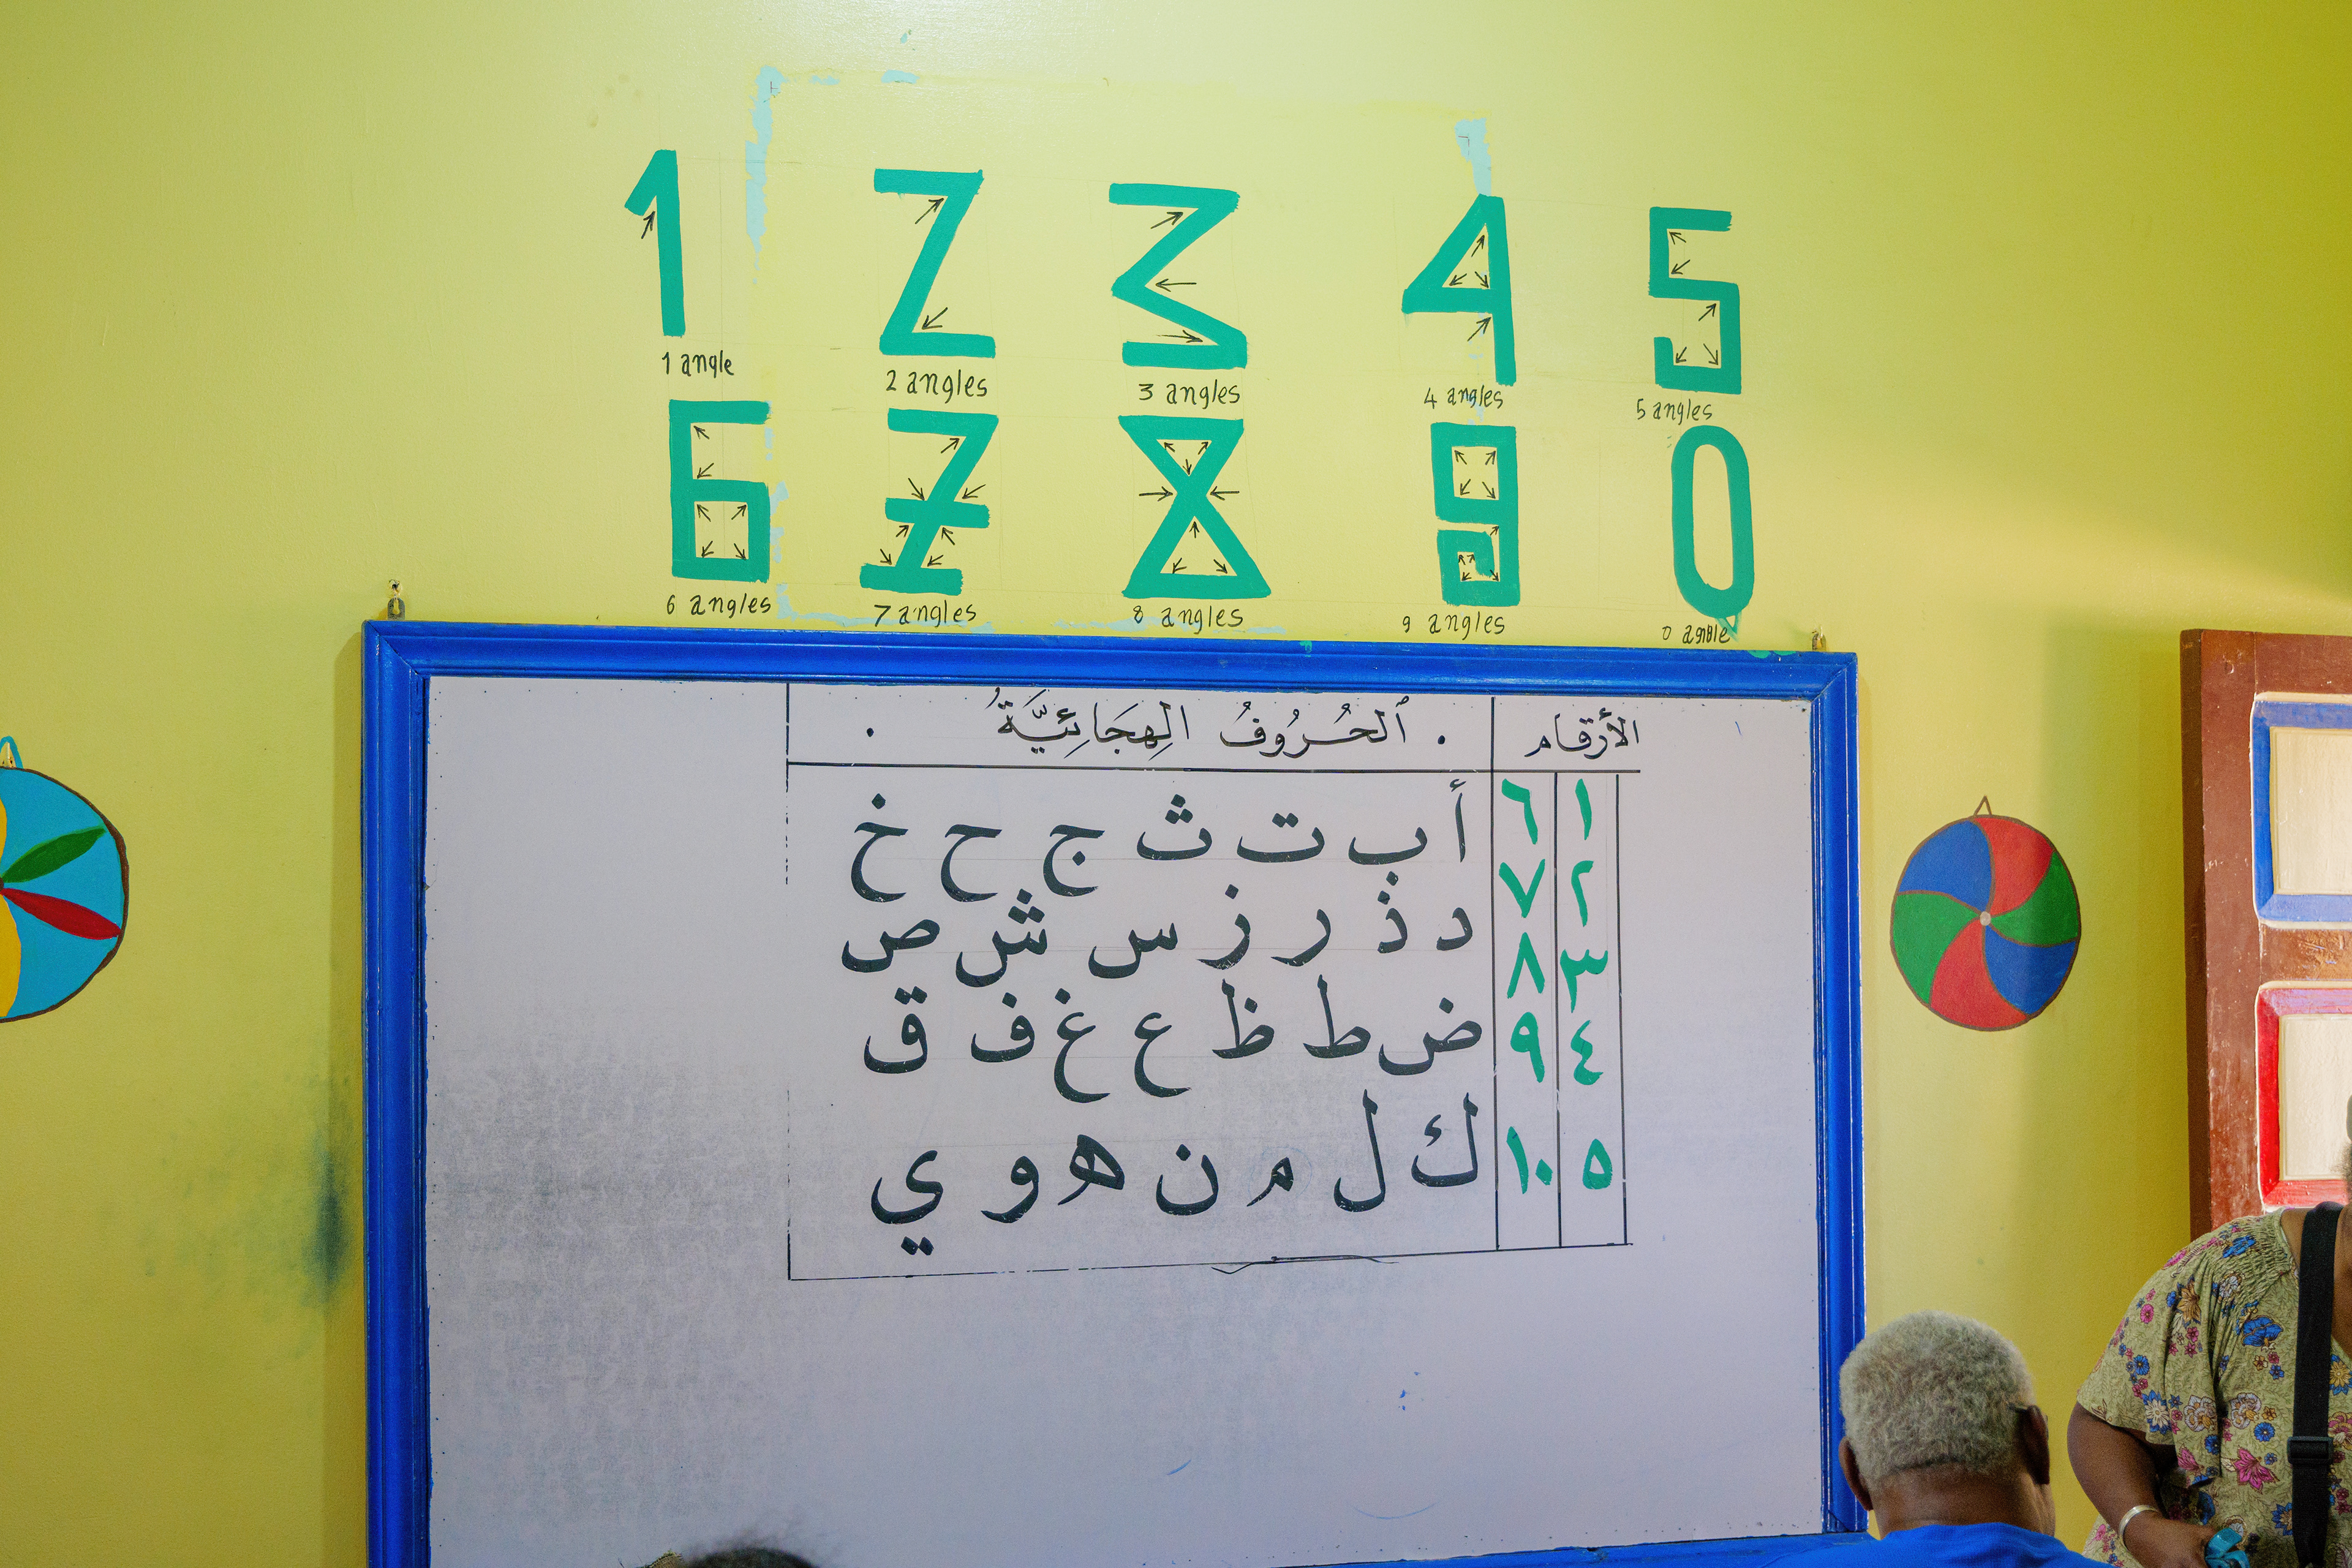 1 2 3 4 5
1 angle 2 angles 3 angles 4 angles 5 angles
6 7 8 9 0
6 angles 7 angles 8 angles 9 angles 0 angle
الأرقام . ٱلحُرُوفُ الهِجَائِيَّةُ .
١ ٦ أ ب ت ث ج ح خ
٢ ٧ د ذ ر ز س ش ص
٣ ٨
٤ ٩ ض ط ظ ع غ ف ق
٥ ١٠ ك ل م ن ه و ي